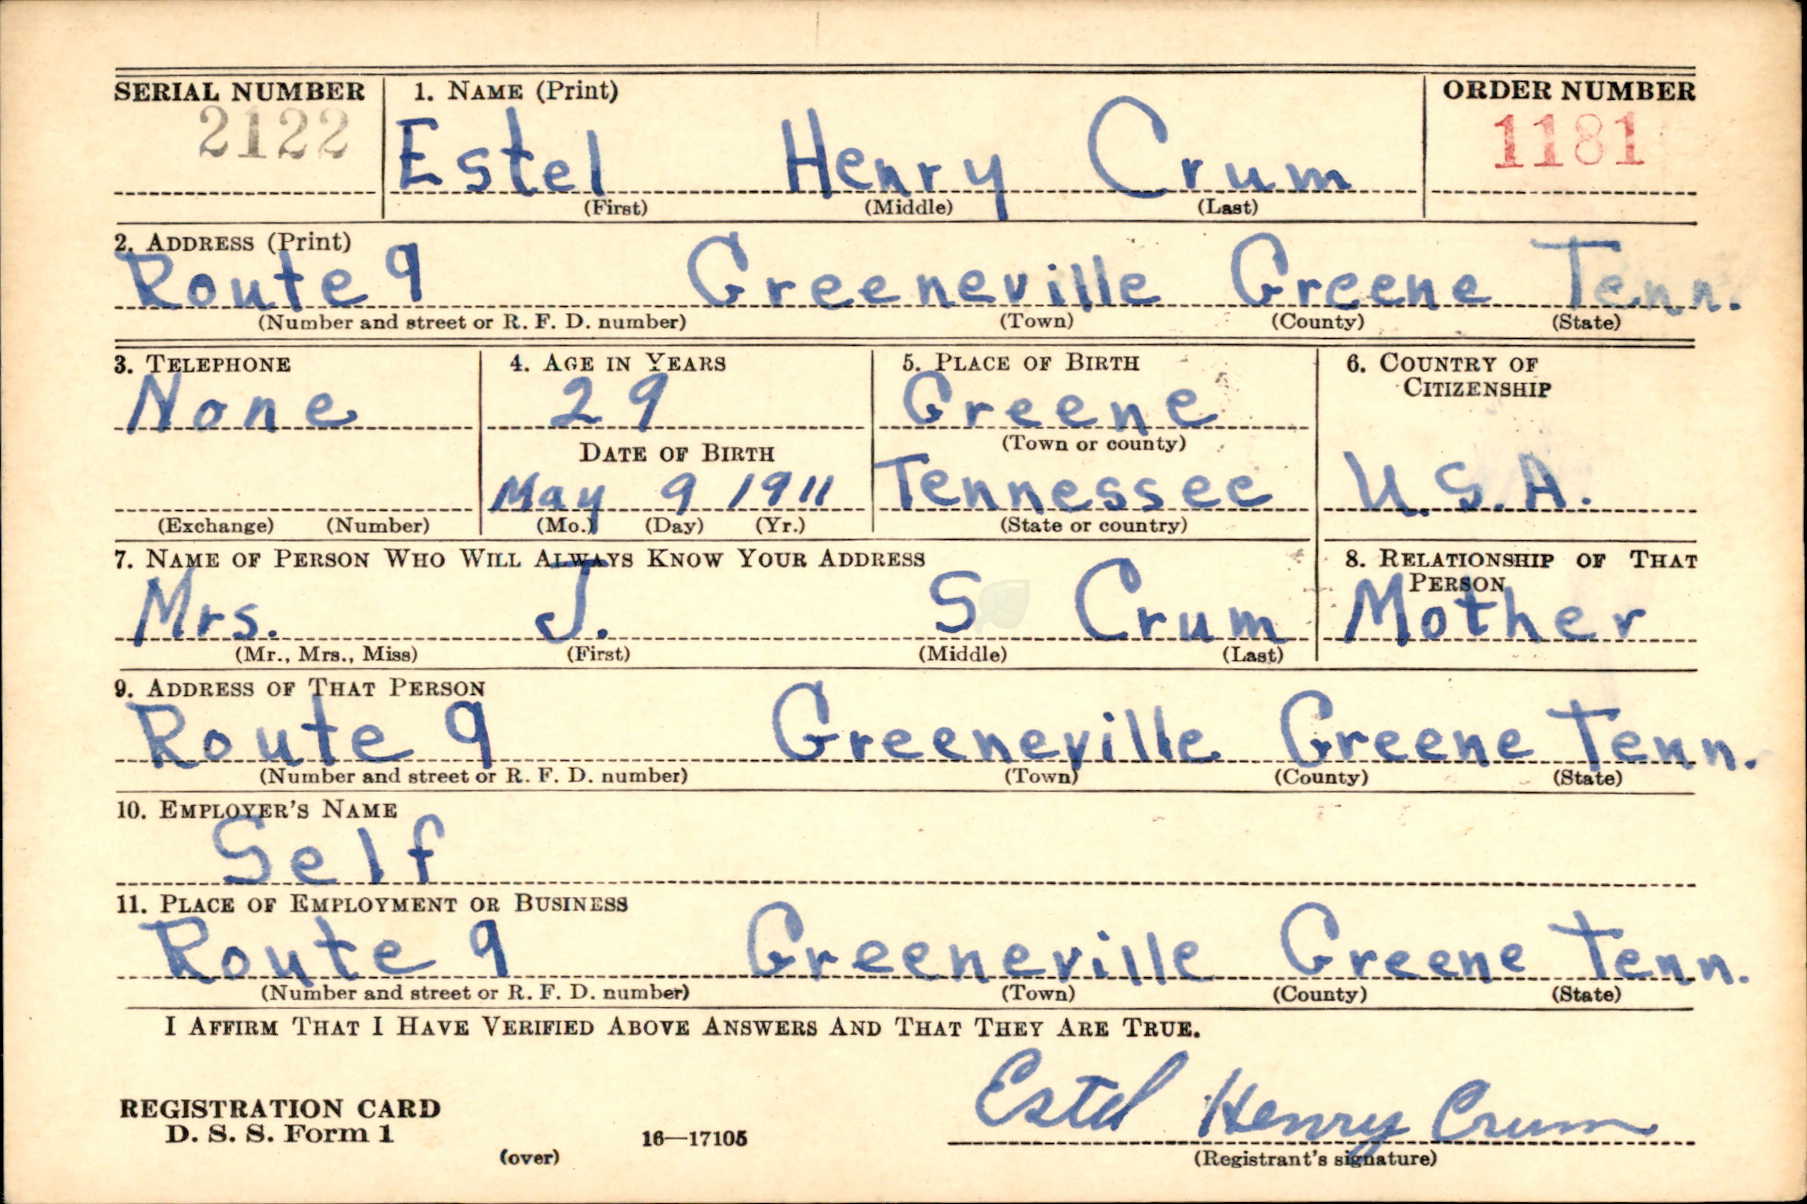 SERIAL NUMBER 1. NAME (Print) ORDER NUMBER
2122 Estel Henry Crum 1181
(First) (Middle) (Last)
2. ADDRESS (Print)
Route 9 Greeneville Greene Tenn.
(Number and street or R. F. D. number) (Town) (County) (State)
3. TELEPHONE 4. AGE IN YEARS 5. PLACE OF BIRTH 6. COUNTRY OF CITIZENSHIP
None 29 Greene
DATE OF BIRTH (Town or county)
May 9 1911 Tennessee U.S.A.
(Exchange) (Number) (Mo.) (Day) (Yr.) (State or country)
7. NAME OF PERSON WHO WILL ALWAYS KNOW YOUR ADDRESS 8. RELATIONSHIP OF THAT PERSON
Mrs. J. S Crum Mother
(Mr., Mrs., Miss) (First) (Middle) (Last)
9. ADDRESS OF THAT PERSON
Route 9 Greeneville Greene Tenn.
(Number and street or R. F. D. number) (Town) (County) (State)
10. EMPLOYER'S NAME
Self
11. PLACE OF EMPLOYMENT OR BUSINESS
Route 9 Greeneville Greene Tenn.
(Number and street or R. F. D. number) (Town) (County) (State)
I AFFIRM THAT I HAVE VERIFIED ABOVE ANSWERS AND THAT THEY ARE TRUE.
Estel Henry Crum
REGISTRATION CARD
D. S. S. Form 1 16—17105
(over) (Registrant's signature)